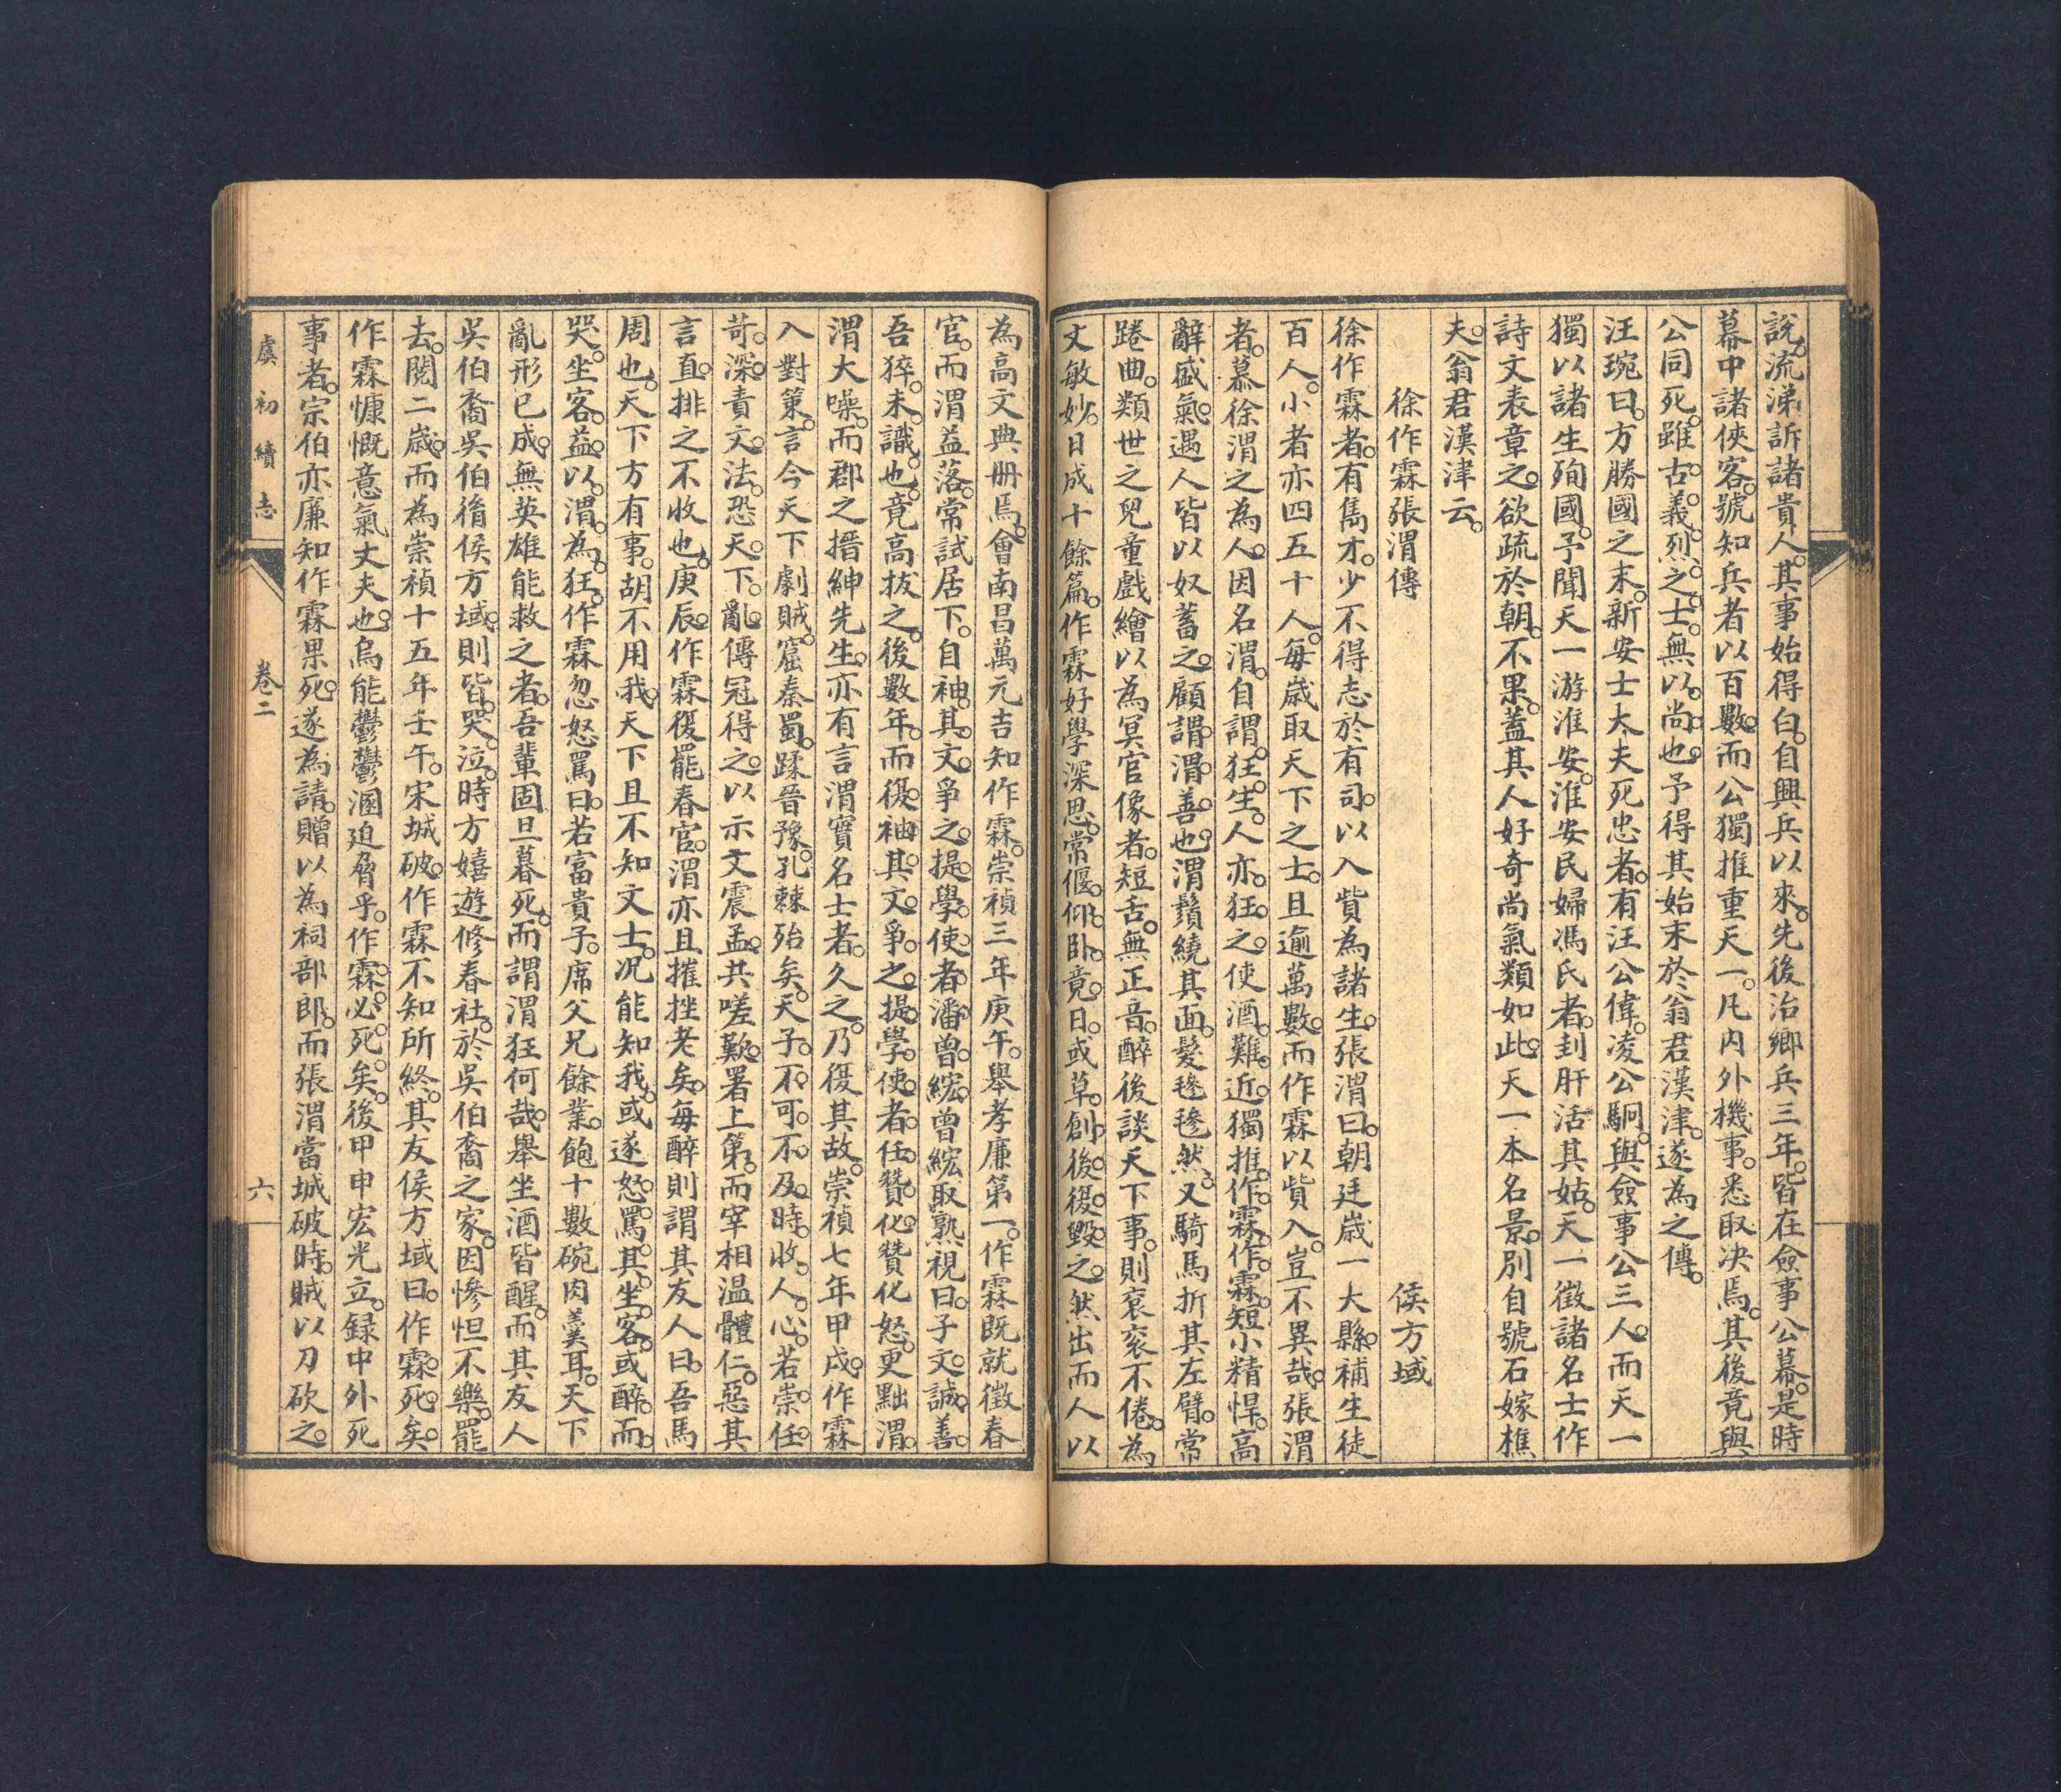 說。流涕訴諸貴人。其事始得白。自興兵以來。先後治鄉兵三年。皆在僉事公幕。是時
幕中諸俠客。號知兵者以百數。而公獨推重天一。凡內外機事。悉取決焉。其後竟與
公同死。雖古義烈之士。無以尚也。予得其始末於翁君漢津。遂為之傳。
汪琬曰。方勝國之末。新安士大夫死忠者。有汪公偉。凌公駉。與僉事公三人。而天一
獨以諸生殉國。予聞天一游淮安。淮安民婦馮氏者。刲肝活其姑。天一徵諸名士作
詩文表章之。欲疏於朝。不果。蓋其人好奇尚氣類如此。天一本名景。別自號石嫁樵
夫。翁君漢津云。
徐作霖張渭傳 侯方域
徐作霖者。有雋才。少不得志於有司。以入貲為諸生。張渭曰。朝廷歲一大縣。補生徒
百人。小者亦四五十人。每歲取天下之士。且逾萬數。而作霖以貲入。豈不異哉。張渭
者。慕徐渭之為人。因名渭。自謂狂生。人亦狂之。使酒難近。獨推作霖。作霖短小精悍。高
辭盛氣。遇人皆以奴蓄之。顧謂渭善也。渭鬚繞其面。髮毿毿然。又騎馬折其左臂。常
踡曲。類世之兒童戲繪以為冥官像者。短舌。無正音。醉後談天下事。則袞袞不倦。為
文敏妙。日成十餘篇。作霖好學深思。常偃仰臥竟日。或草創後復毀之。然出而人以
為高文典冊焉。會南昌萬元吉知作霖。崇禎三年庚午。舉孝廉第一。作霖既就徵春
官。而渭益落。常試居下。自袖其文。爭之提學使者潘曾紘。曾紘取熟視曰。子文誠善。
吾猝未識也。竟高拔之。後數年。而復袖其文。爭之提學使者任贊化。贊化怒。更黜渭。
渭大噪。而郡之搢紳先生。亦有言渭實名士者。久之。乃復其故。崇禎七年甲戌。作霖
入對策。言今天下劇賊。窟秦蜀。蹂晉豫。孔棘殆矣。天子不可不及時收人心。若崇任
苛深。責文法。恐天下亂。傳冠得之。以示文震孟。共嗟歎。署上第。而宰相溫體仁。惡其
言直。排之不收也。庚辰。作霖復罷春官。渭亦且摧挫老矣。每醉則謂其友人曰。吾馬
周也。天下方有事。胡不用我。天下且不知文士。況能知我。或遂怒罵其坐客。或醉而
哭。坐客益以渭為狂。作霖忽怒罵曰。若富貴子。席父兄餘業。飽十數碗肉羹耳。天下
亂形已成。無英雄能救之者。吾輩固旦暮死。而謂渭狂何哉。舉坐酒皆醒。而其友人
吳伯裔吳伯胤侯方域。則皆哭泣。時方嬉遊修春社。於吳伯裔之家。因慘怛不樂。罷
去。閱二歲。而為崇禎十五年壬午。宋城破。作霖不知所終。其友侯方域曰。作霖死矣。
作霖慷慨意氣丈夫也。烏能鬱鬱溷迫脅乎。作霖必死矣。後甲申宏光立。錄中外死
事者。宗伯亦廉知作霖果死。遂為請。贈以為祠部郎。而張渭當城破時。賊以刀砍之。
虞初續志 卷二 六